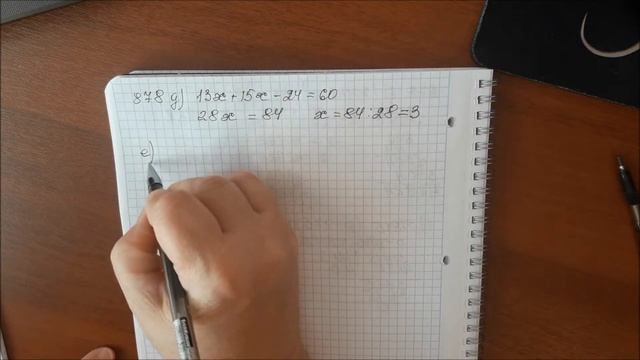 878 д) 13x+15x-24=60
28x =84 x=84:28=3
е)